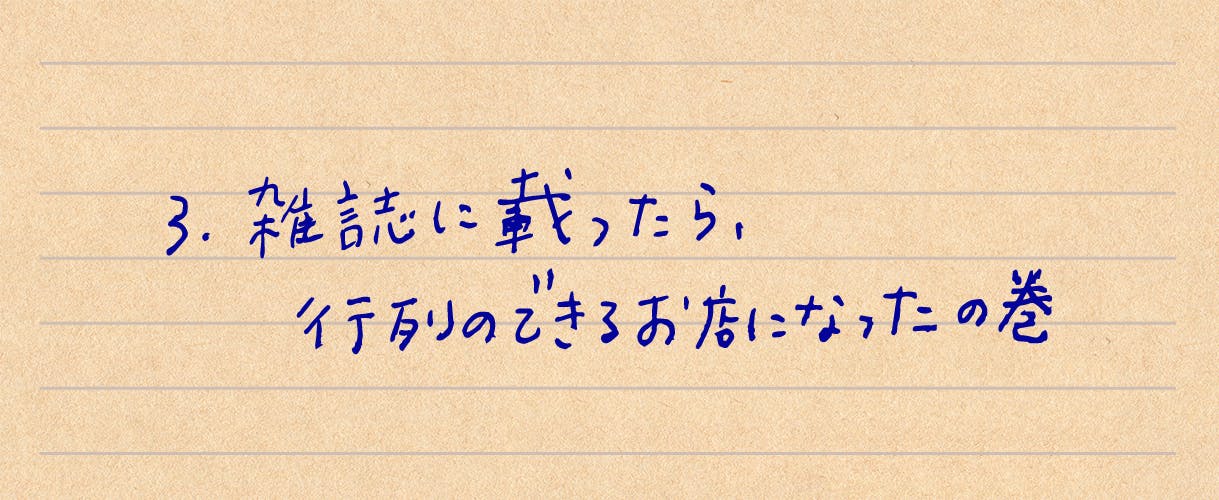 3. 雑誌に載ったら、
行列のできるお店になったの巻